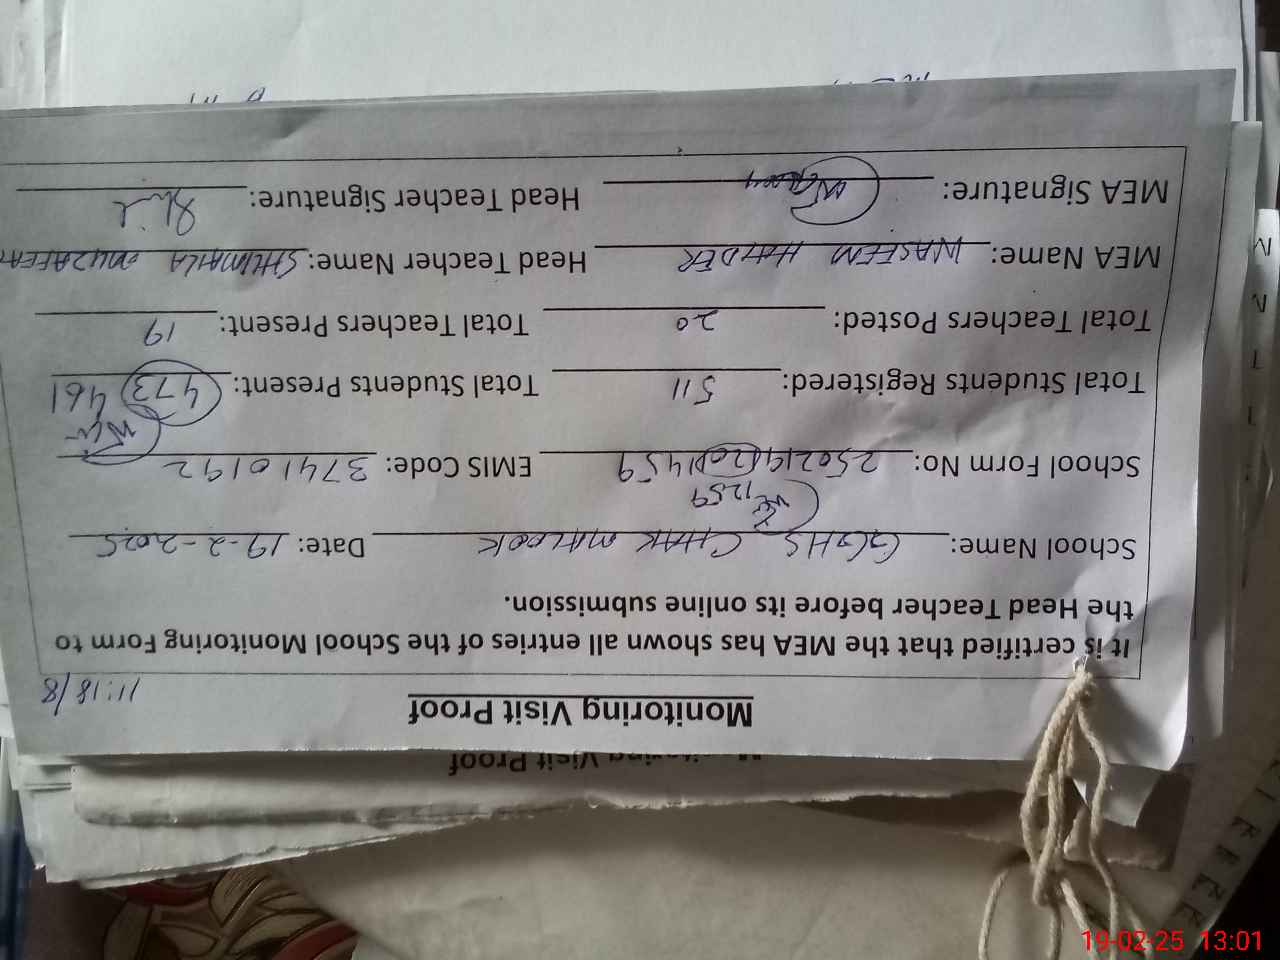 Monitoring Visit Proof
11:18/8
It is certified that the MEA has shown all entries of the School Monitoring Form to
the Head Teacher before its online submission.
School Name: GGHS CHAK MALOOK Date: 19-2-2025
1259
School Form No: 250219 1201459 EMIS Code: 37410192
Total Students Registered: 511 Total Students Present: 473 461
Total Teachers Posted: 20 Total Teachers Present: 19
MEA Name: WASEEM HAIDER Head Teacher Name: SHUMAILA MUZAFFAR
MEA Signature: Head Teacher Signature:
Monitoring Visit Proof
19-02-25 13:01